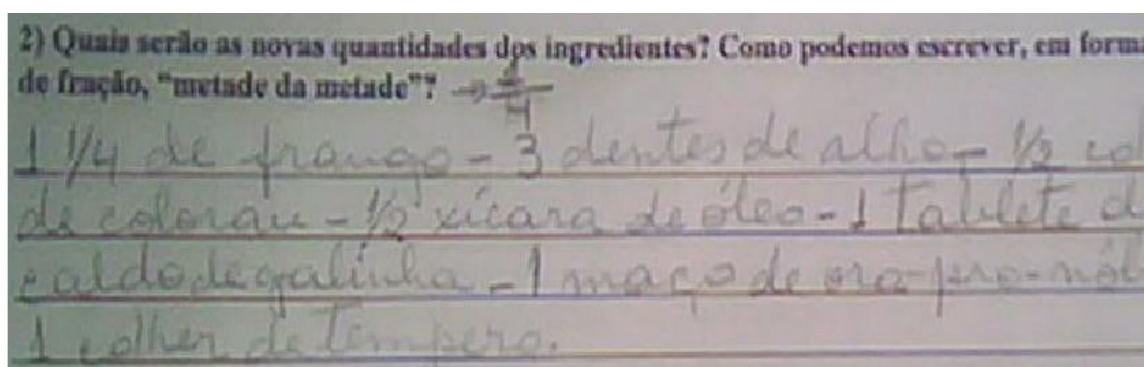 2) Quais serão as novas quantidades dos ingredientes? Como podemos escrever, em form
de fração, "metade da metade"? → 1/4
1 1/4 de frango - 3 dentes de alho - 1/2 co
de colorau - 1/2 xícara de óleo - 1 tablete d
caldo de galinha - 1 maço de ora-pro-nób
1 colher de tempero.